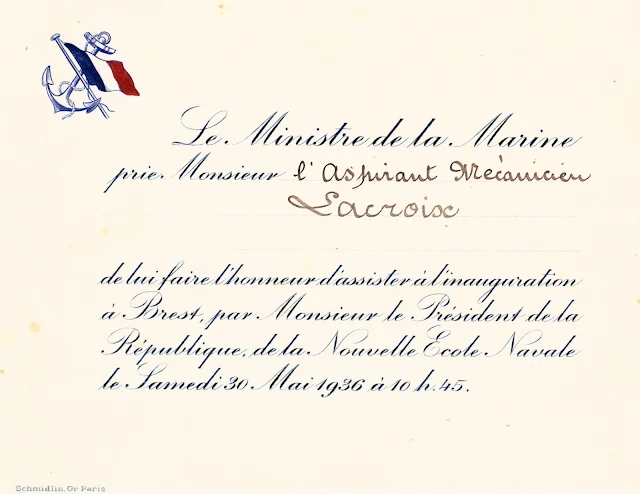 Le Ministre de la Marine
prie Monsieur l'Aspirant Mécanicien
Lacroix
de lui faire l'honneur d'assister à l'inauguration
à Brest, par Monsieur le Président de la
République, de la Nouvelle Ecole Navale
le Samedi 30 Mai 1936 à 10 h. 45.
Schmidlin, Gr. Paris